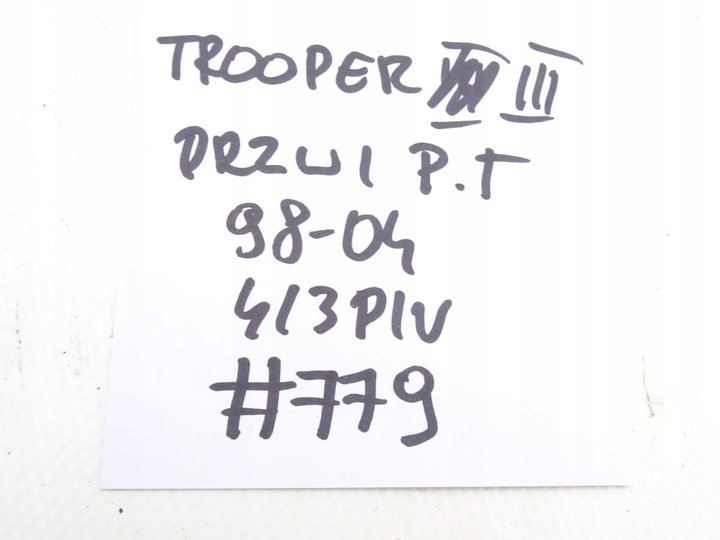 TROOPER III
DRZWI P.T
98-04
4/3PIV
#779